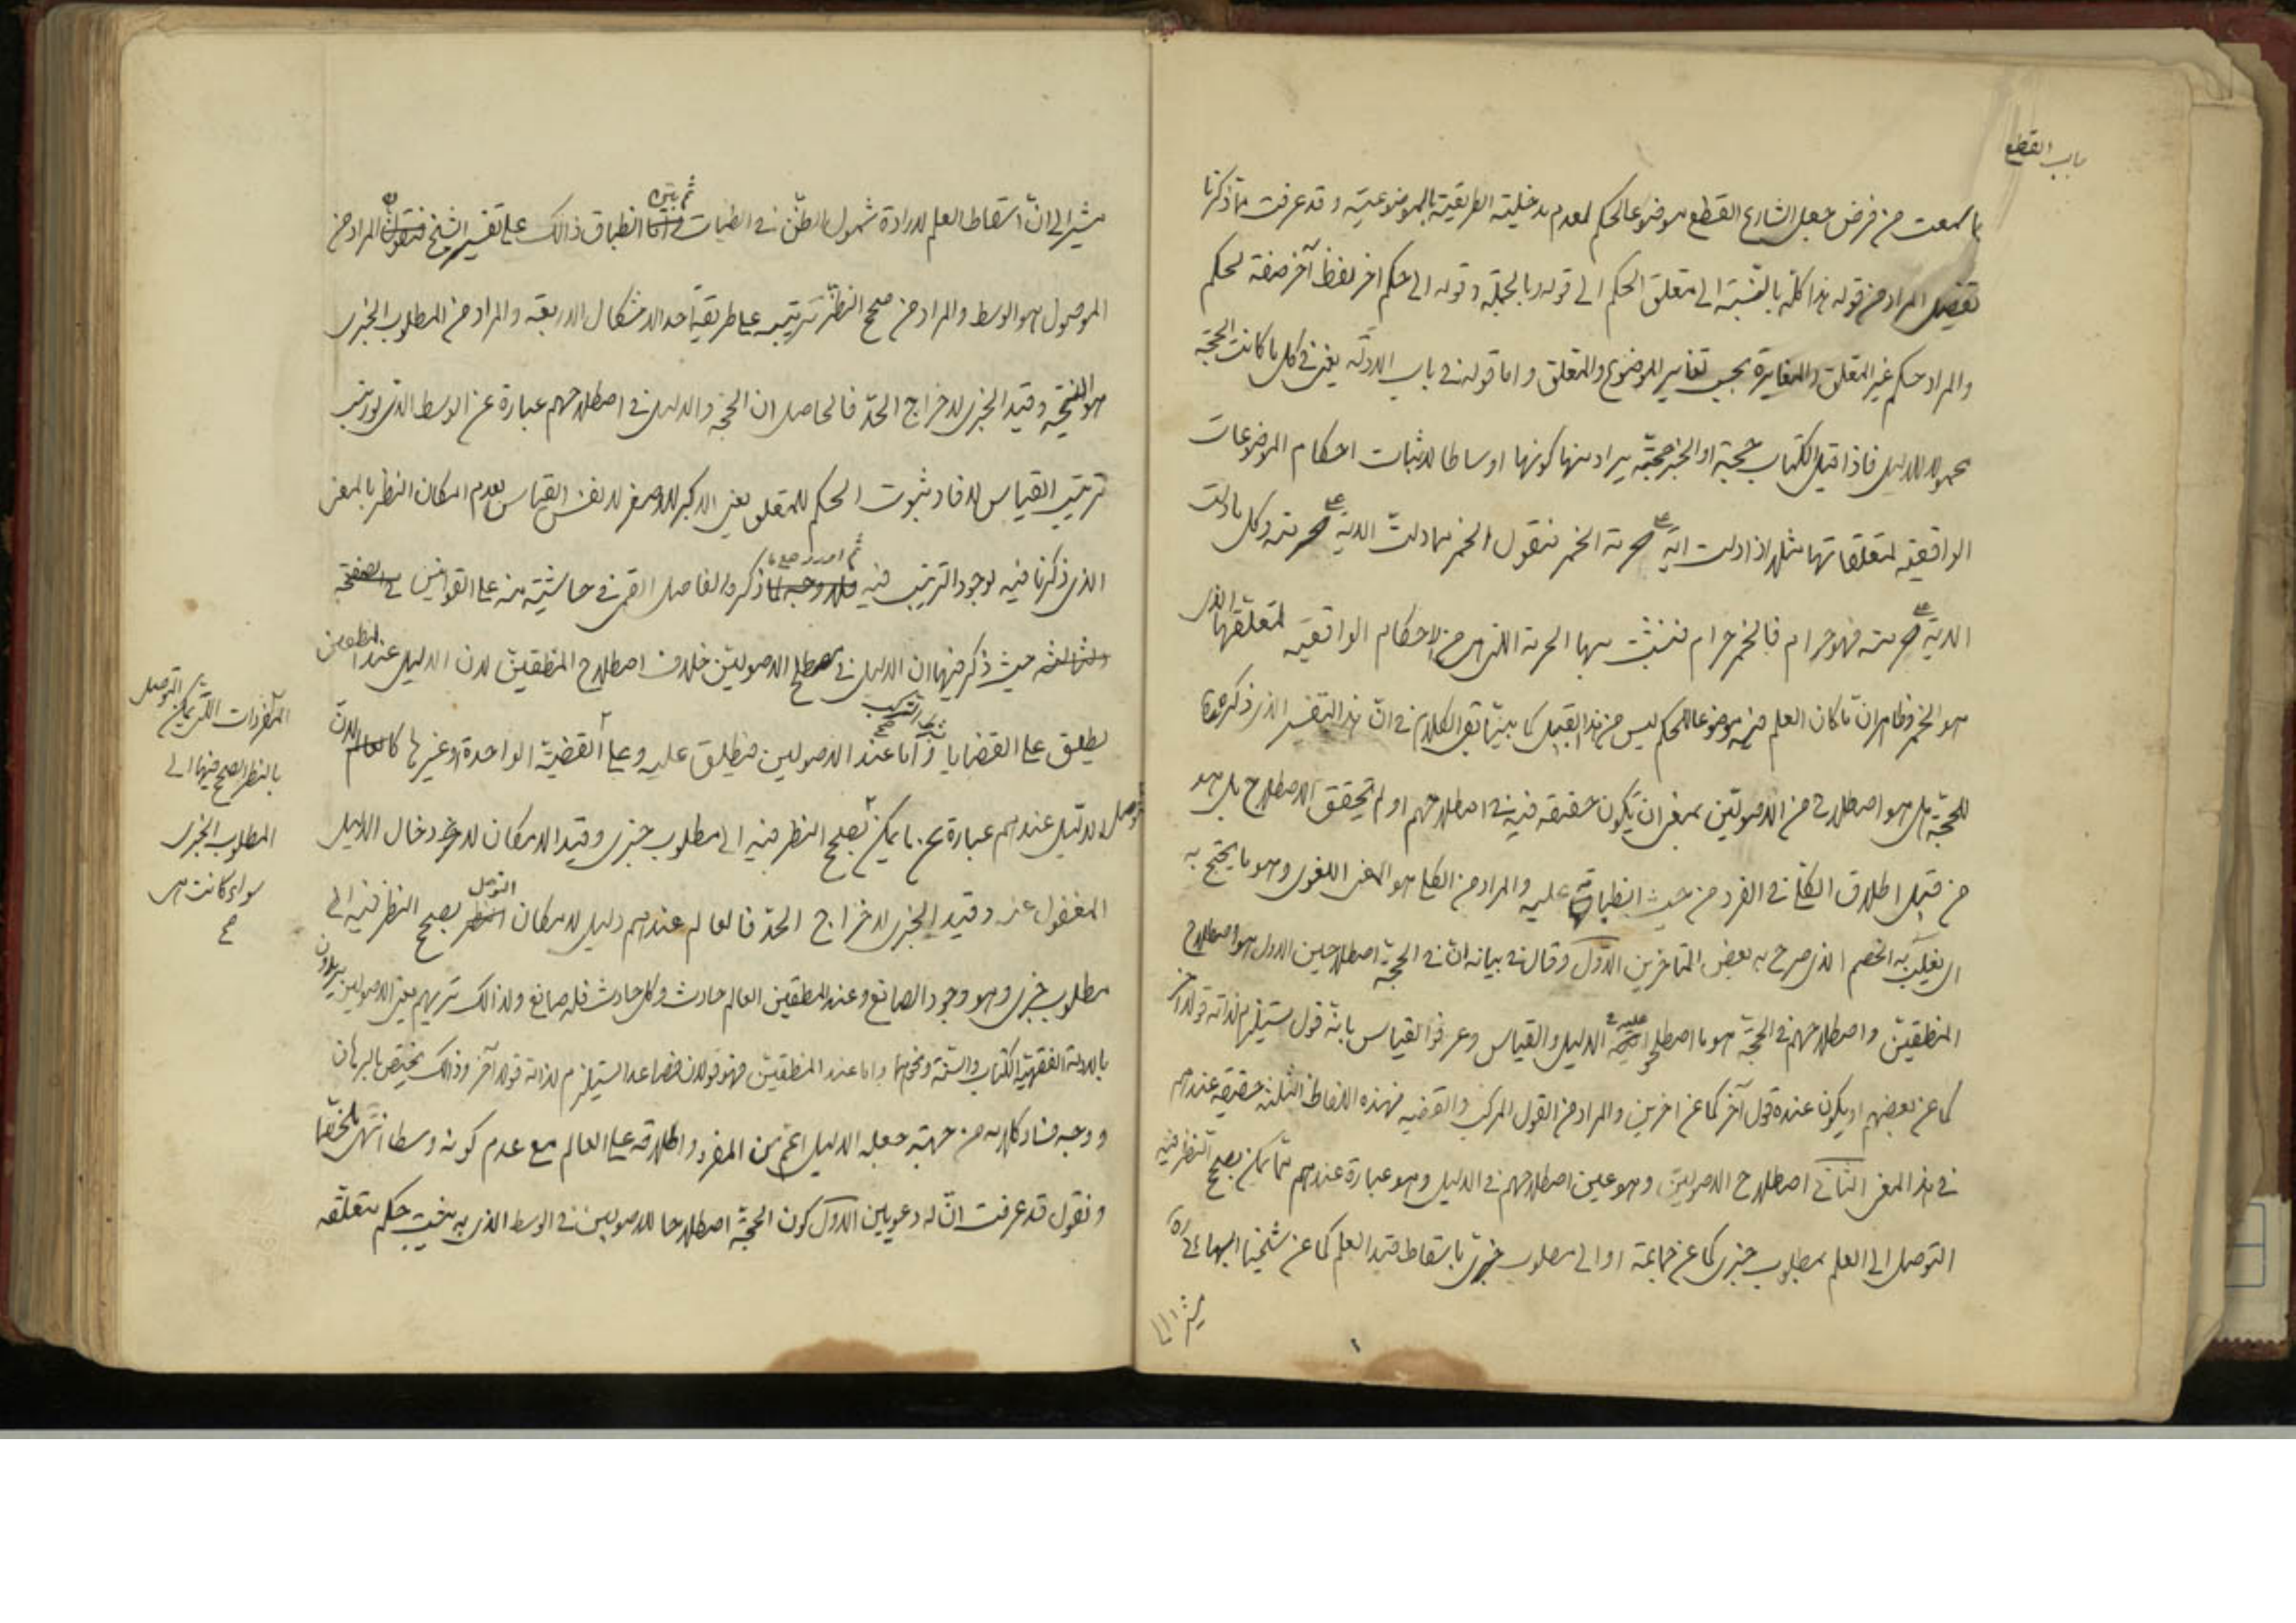 باب القطع
ما سمعت من فرض جعل الشارع القطع موضوعا لحكم لعدم مدخلية الطريقية بالموضوعية و قد عرفت مما ذكرنا
تفصيل المراد من قوله هذا كله بالنسبة الى متعلق الحكم الى قوله و بالجملة و قوله الى حكم اخر لفظ آخر صفة لحكم
والمراد حكم غير المتعلق والمغايرة بحسب تغاير الموضوع والمتعلق و اما قوله في باب الادلة يعنى في كل ما كانت الحجة
محمولا للدليل فاذا قيل الكتاب حجة او الخبر حجة يراد منها كونها اوساطا لاثبات احكام الموضوعات
الواقعية لمتعلقاتها مثلا اذا دلت آية على حرمة الخمر فنقول الخمر مما دلت الاية على حرمته وكل ما دلت
الاية على حرمته فهو حرام فالخمر حرام فنثبت بها الحرمة اللتى هى من الاحكام الواقعية لمتعلقها الذى
هو الخمر وظاهر ان ما كان العلم فيه موضوعا للحكم ليس من هذا القبيل كما بينا بقى الكلام في ان هذا التفسير الذى ذكره
للحجة هل هو اصطلاح من الاصوليين بمعنى ان يكون حقيقة فيه في اصطلاحهم او لم يتحقق الاصطلاح بل هو
من قبيل اطلاق الكلى في الفرد من حيث انطباقه عليه والمراد من الكلى هو المعنى اللغوى وهو ما يحتج به
اى يغلب به الخصم الذى صرح به بعض المتاخرين الاول وقال في بيانه ان في الحجة اصطلاحين الاول هو اصطلاح
المنطقيين و اصطلاحهم في الحجة هو ما اصطلحوا عليه في الدليل والقياس وعرفوا القياس بانه قول يستلزم لذاته قولا آخر
كما عن بعضهم او يكون عنده قول آخر كما عن اخرين والمراد من القول المركب والقضية فهذه الالفاظ الثلثة حقيقة عندهم
في هذا المعنى الثانى اصطلاح الاصوليين وهو عين اصطلاحهم في الدليل وهو عبارة عندهم عما يمكن بصحيح النظر فيه
التوصل الى العلم بمطلوب خبرى كما عن جماعة او الى مطلوب خبرى باسقاط قيد العلم كما عن شيخنا البهائى ره
مشيرا الى
مشيرا الى ان اسقاط العلم لارادة شمول الظن في الظنيات ثم بين انطباق ذالك على تفسير الشيخ ان المراد من
الموصول هو الوسط والمراد من صحيح النظر ترتيبه على طريقة احد الاشكال الاربعة والمراد من المطلوب الخبرى
هو النتيجة وقيد الخبرى لاخراج الحد فالحاصل ان الحجة والدليل في اصطلاحهم عبارة عن الوسط الذى
ترتيب القياس لافاد ثبوت الحكم للمتعلق يعنى الاكبر للاصغر لا نفس القياس لعدم امكان النظر بالمعنى
الذى ذكرنا فيه لوجود الترتيب فيه ثم اورد على ما ذكره الفاضل القمى في حاشيته منه على القوانين
حيث ذكر فيها ان الدليل في مصطلح الاصوليين خلاف اصطلاح المنطقيين لان الدليل عند المنطقيين
يطلق على القضايا بشرط التركيب و اما عند الاصوليين فيطلق عليه و على القضية الواحدة و غيرها كالعالم لان
الدليل عندهم عبارة عن ما يمكن التوصل بصحيح النظر فيه الى مطلوب خبرى وقيد الامكان لادخال الدليل
المغفول عنه وقيد الخبرى لاخراج الحد فالعالم عندهم دليل لامكان التوصل بصحيح النظر فيه الى
مطلوب خبرى وهو وجود الصانع وعند المنطقيين العالم حادث وكل حادث فله صانع ولذالك تريهم يعنى الاصوليين يريدون
بالادلة الفقهية الكتاب والسنة ونحوهما واما عند المنطقيين فهو قولان فصاعدا يستلزم لذاته قولا آخر وذالك يختص بالبرهان
و وجه فساد كلامه من جهة جعله الدليل اعم من المفرد و اطلاقه على العالم مع عدم كونه وسطا انتهى ملخصا
و نقول قد عرفت ان له دعويين الاول كون الحجة اصطلاحا للاصوليين في الوسط الذى به يثبت حكم متعلقه
المفردات اللتى يمكن التوصل
بالنظر الصحيح فيها الى
المطلوب الخبرى
سواء كانت هى